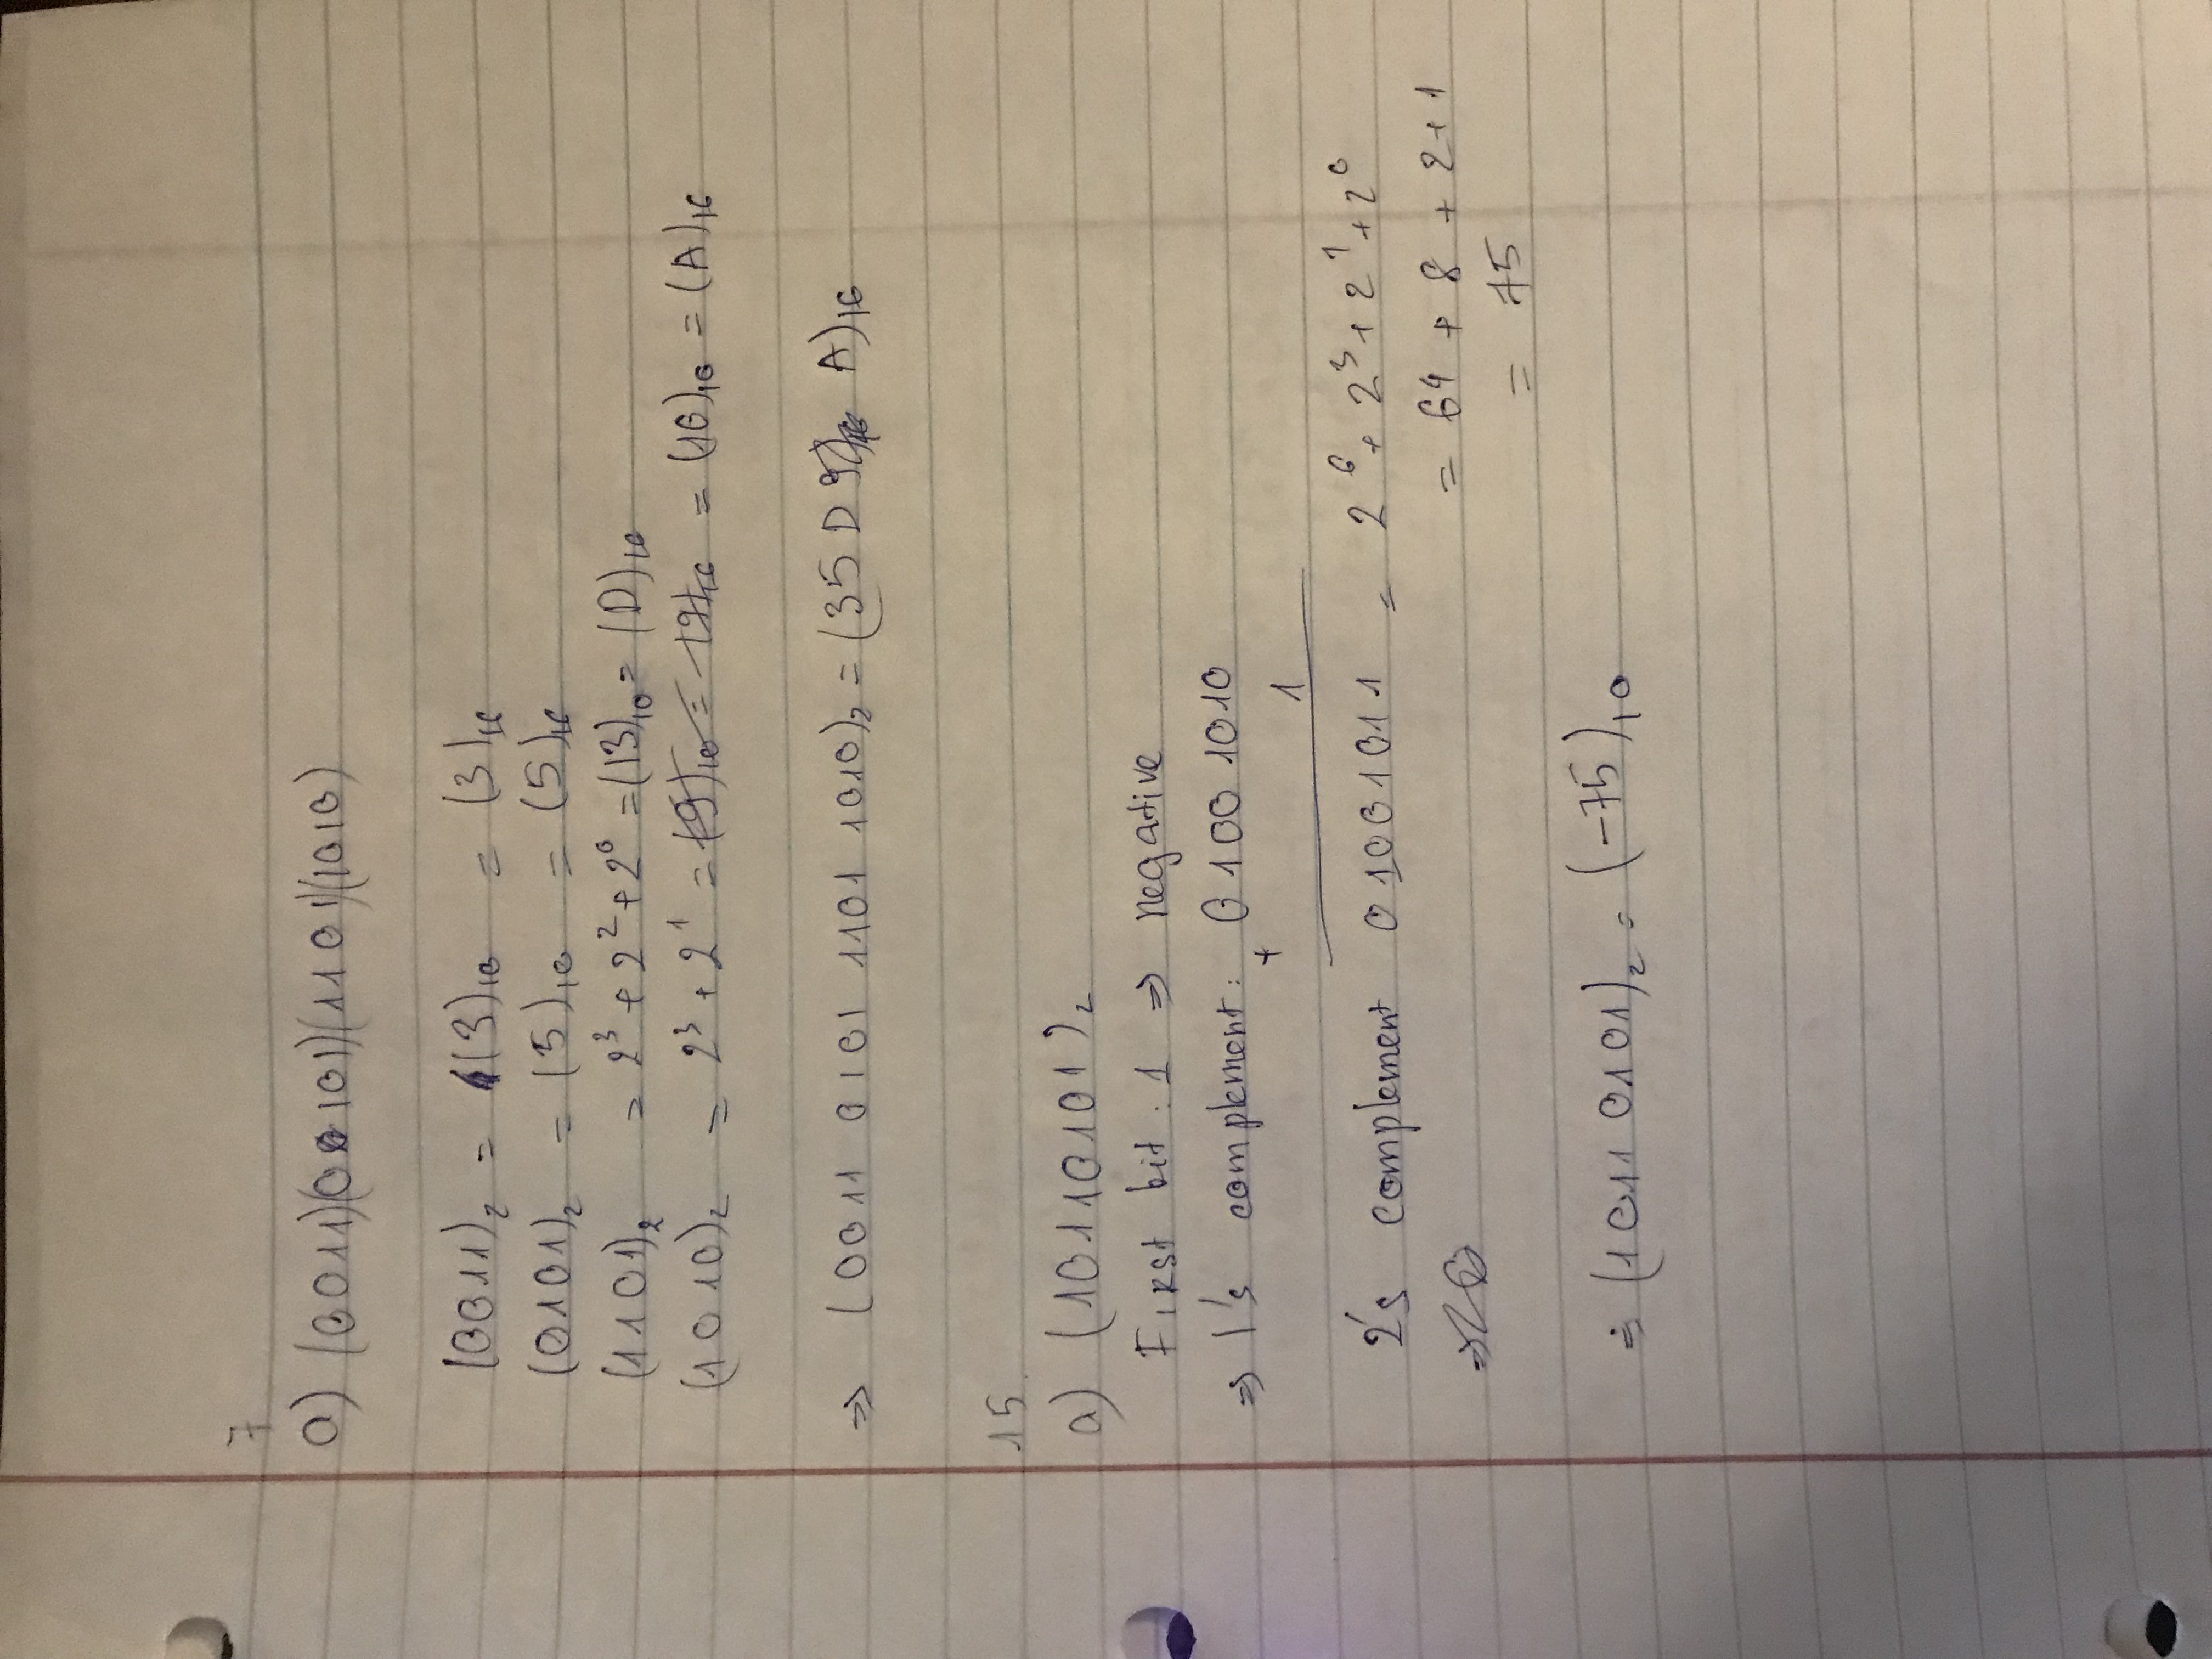 7
a) (0011)(0 0101)(1101)(1010)
(0011)₂ = (3)₁₀ = (3)₁₆
(0101)₂ = (5)₁₀ = (5)₁₆
(1101)₂ = 2³ + 2² + 2⁰ = (13)₁₀ = (D)₁₆
(1010)₂ = 2³ + 2¹ = (9)₁₀ = (9)₁₆ = (10)₁₀ = (A)₁₆
⇒ (0011 0101 1101 1010)₂ = (35 D 9)₁₆ A)₁₆
15.
a) (10110101)₂
First bit : 1 ⇒ negative
⇒ 1's complement: 0100 1010
+ 1
2's complement 01001011 = 2⁶ + 2³ + 2¹ + 2⁰
⇒ = 64 + 8 + 2 + 1
= 75
⇒ (1011 0101)₂ = (-75)₁₀